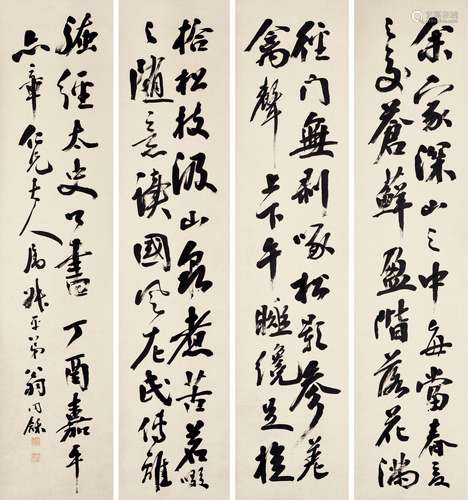 余家深山之中每當春夏
之交蒼蘚盈階落花滿
徑門無剝啄松影參差
禽聲上下午睡纔足旋
拾松枝汲山泉煮苦茗啜
之隨意讀國風左氏傳離
騷經太史公書 丁酉嘉平
章仁兄大人屬 叔平弟翁同龢